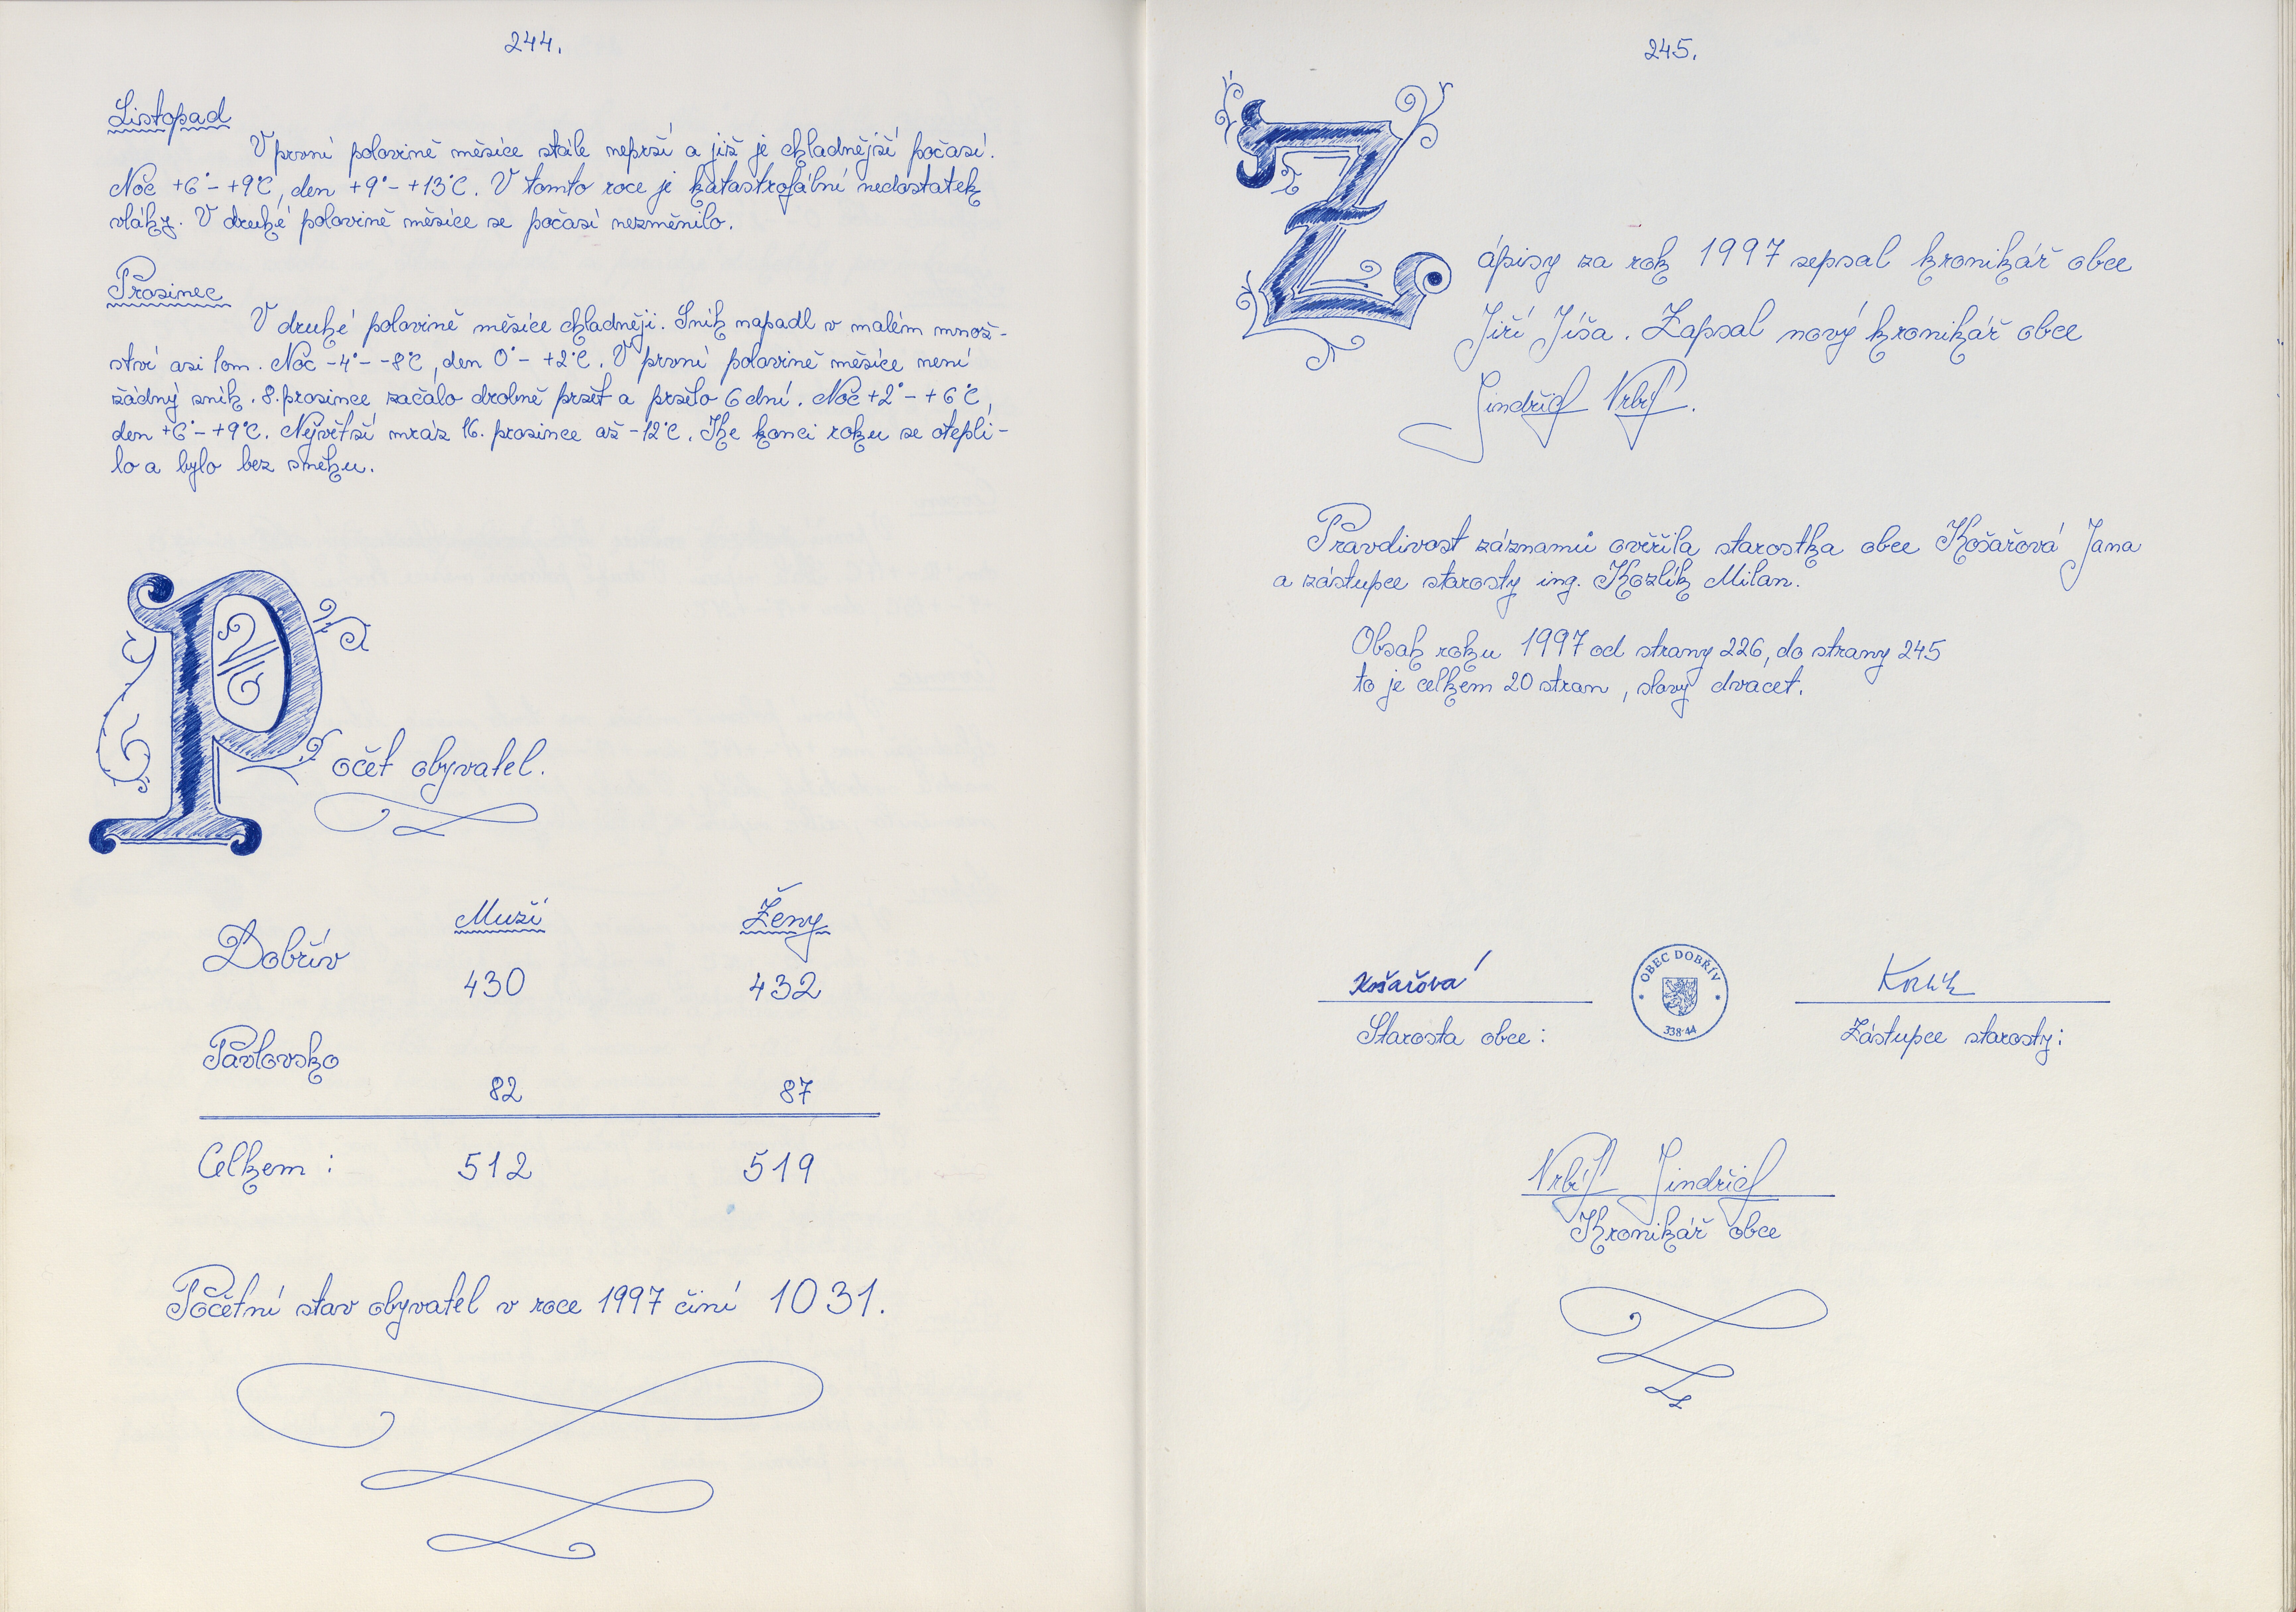 244.
Listopad
V první polovině měsíce stále neprší a již je chladnější počasí.
Noc +6°- +9°C, den +9°- +13°C. V tomto roce je katastrofální nedostatek
vláhy. V druhé polovině měsíce se počasí nezměnilo.
Prosinec
V druhé polovině měsíce chladněji. Sníh napadl v malém množ-
ství asi 1cm. Noc -4°- -8°C, den 0°- +2°C. V první polovině měsíce není
žádný sníh. 8. prosince začalo drobně pršet a pršelo 6 dní. Noc +2°- +6°C,
den +6°- +9°C. Největší mráz 16. prosince až -12°C. Ke konci roku se otepli-
lo a bylo bez sněhu.
Počet obyvatel.
Muži Ženy
Dobřív
430 432
Pavlovsko
82 87
Celkem : 512 519
Početní stav obyvatel v roce 1997 činí 1031.
245.
Zápisy za rok 1997 sepsal kronikář obce
Jiří Jíša. Zapsal nový kronikář obce
Jindřich Vrbí.
Pravdivost záznamů ověřila starostka obce Košařová Jana
a zástupce starosty ing. Kozlík Milan.
Obsah roku 1997 od strany 226, do strany 245
to je celkem 20 stran, slovy dvacet.
Košařová
OBEC DOBŘÍV
338 44
Kozlík
Starosta obce :
Zástupce starosty :
Jindřich
Kronikář obce